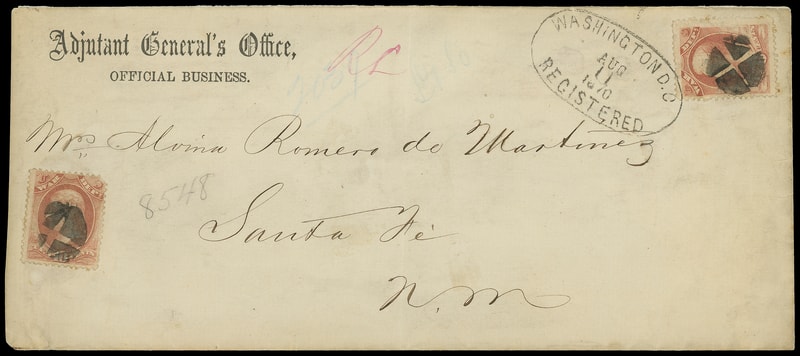 Adjutant General's Office,
OFFICIAL BUSINESS.
WASHINGTON D.C
AUG
11
REGISTERED
Mrs Alvina Romero de Martinez
8548
Santa Fé
N. M